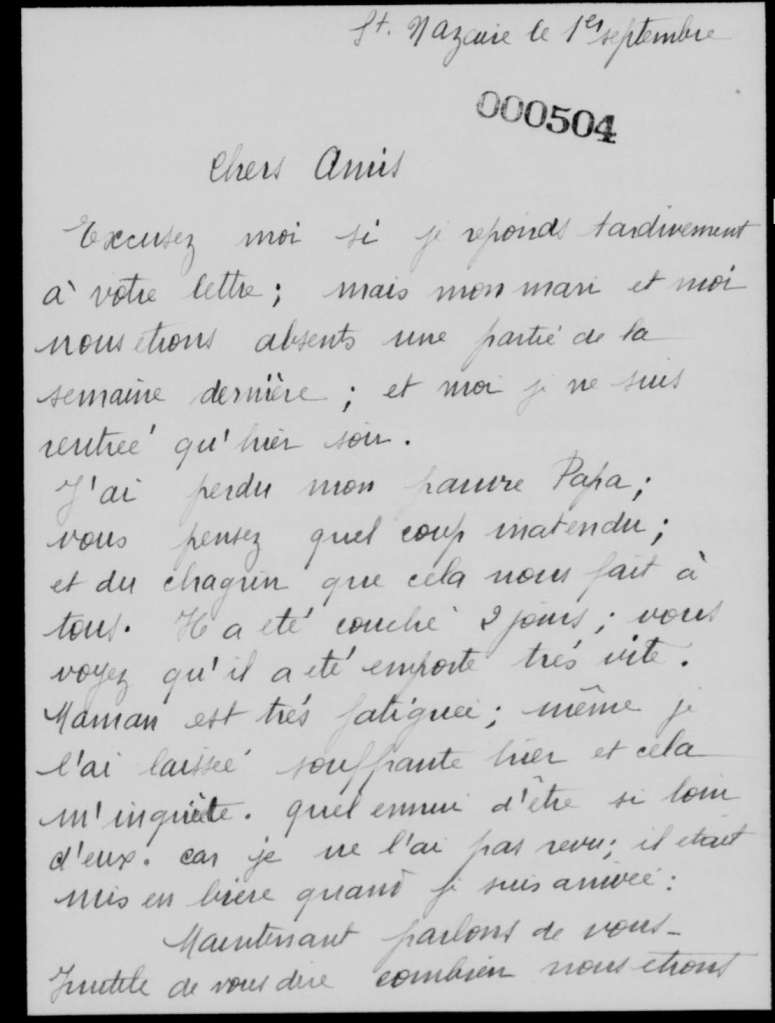 St. Nazaire le 1er septembre
000504
Chers Amis
Excusez moi si je reponds tardivement
à votre lettre ; mais mon mari et moi
nous etions absents une partie de la
semaine dernière ; et moi je ne suis
rentreé qu'hier soir.
J'ai perdu mon pauvre Papa ;
vous pensez quel coup inatendu ;
et du chagrin que cela nous fait à
tous. Il a eté couché 2 jours ; vous
voyez qu'il a eté emporté trés vite.
Maman est trés fatiguée ; même je
l'ai laisseé souffrante hier et cela
m'inquiète. quel ennui d'être si loin
d'eux. car je ne l'ai pas revu ; il etait
mis en bière quand je suis arrivée :
Maintenant parlons de vous -
Inutile de vous dire combien nous etions